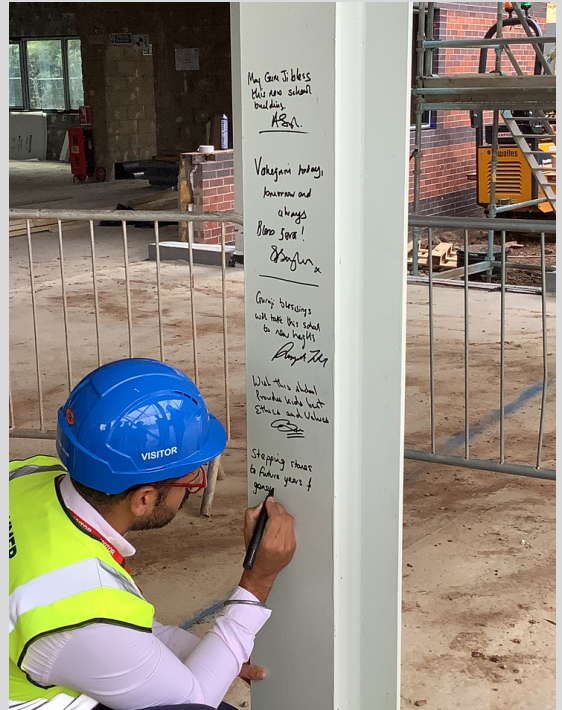 May Guru Ji bless
this new school
building.
Vaheguru today,
tomorrow and
always
Guruji blessings
will take this school
to new heights
Wish this school
Provides kids best
Ethics and Values
Stepping stones
to future years &
VISITOR